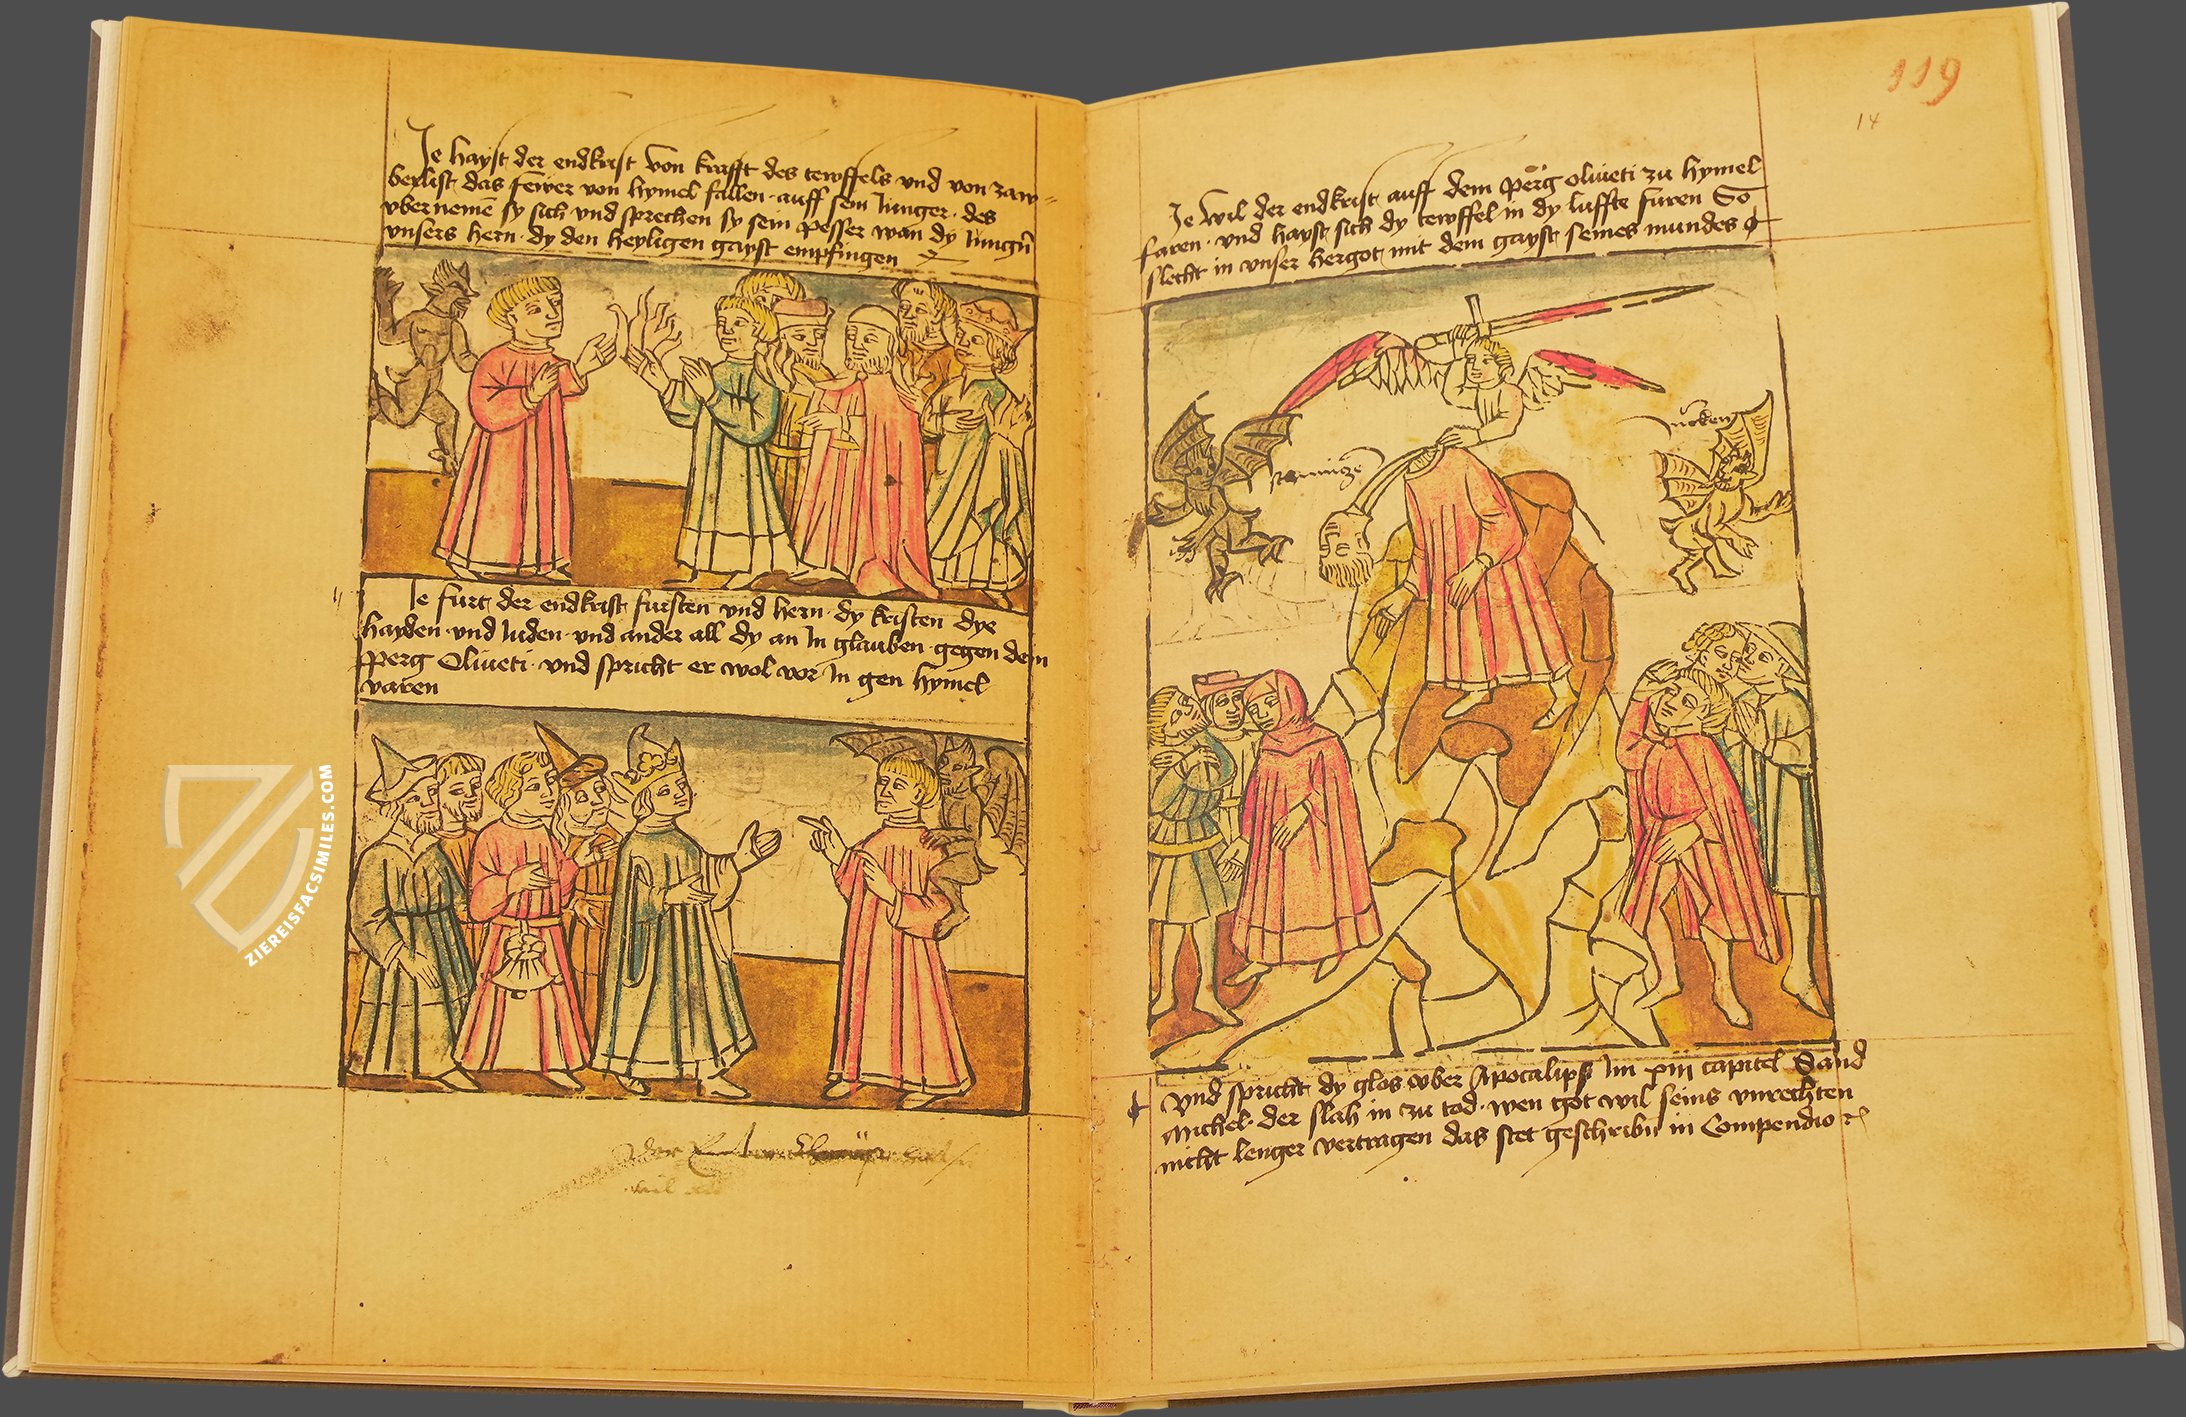 Je hayst der endkrist von krafft des tewffels und von zaw-
berlist das fewer von hymel fallen auff sein Junger des
ubernemē sy sich und sprechen sy sein pesser wan dy Jungn̄
unsers hern dy den heyligen gayst empfingen
Je furt der endkrist fursten und hern dy kristen dye
hayden und Juden und ander all dy an In glauben gegen dem
perg Oliueti und spricht er wol vor In gen hymel
varen
der
ZIEREISFACSIMILES.COM
119
14
Je wil der endkrist auff dem perg oliueti zu hymel
faren und hayst sich dy tewffel in dy luffte furen So
slecht in unser hergot mit dem gayst seines mundes
Und spricht dy glos uber Apocalips Im xiii capitel Sand
Michel der slah in zu tod wen got wil seins unrechten
nicht lenger vertragen das stet geschribn̄ in Compendio